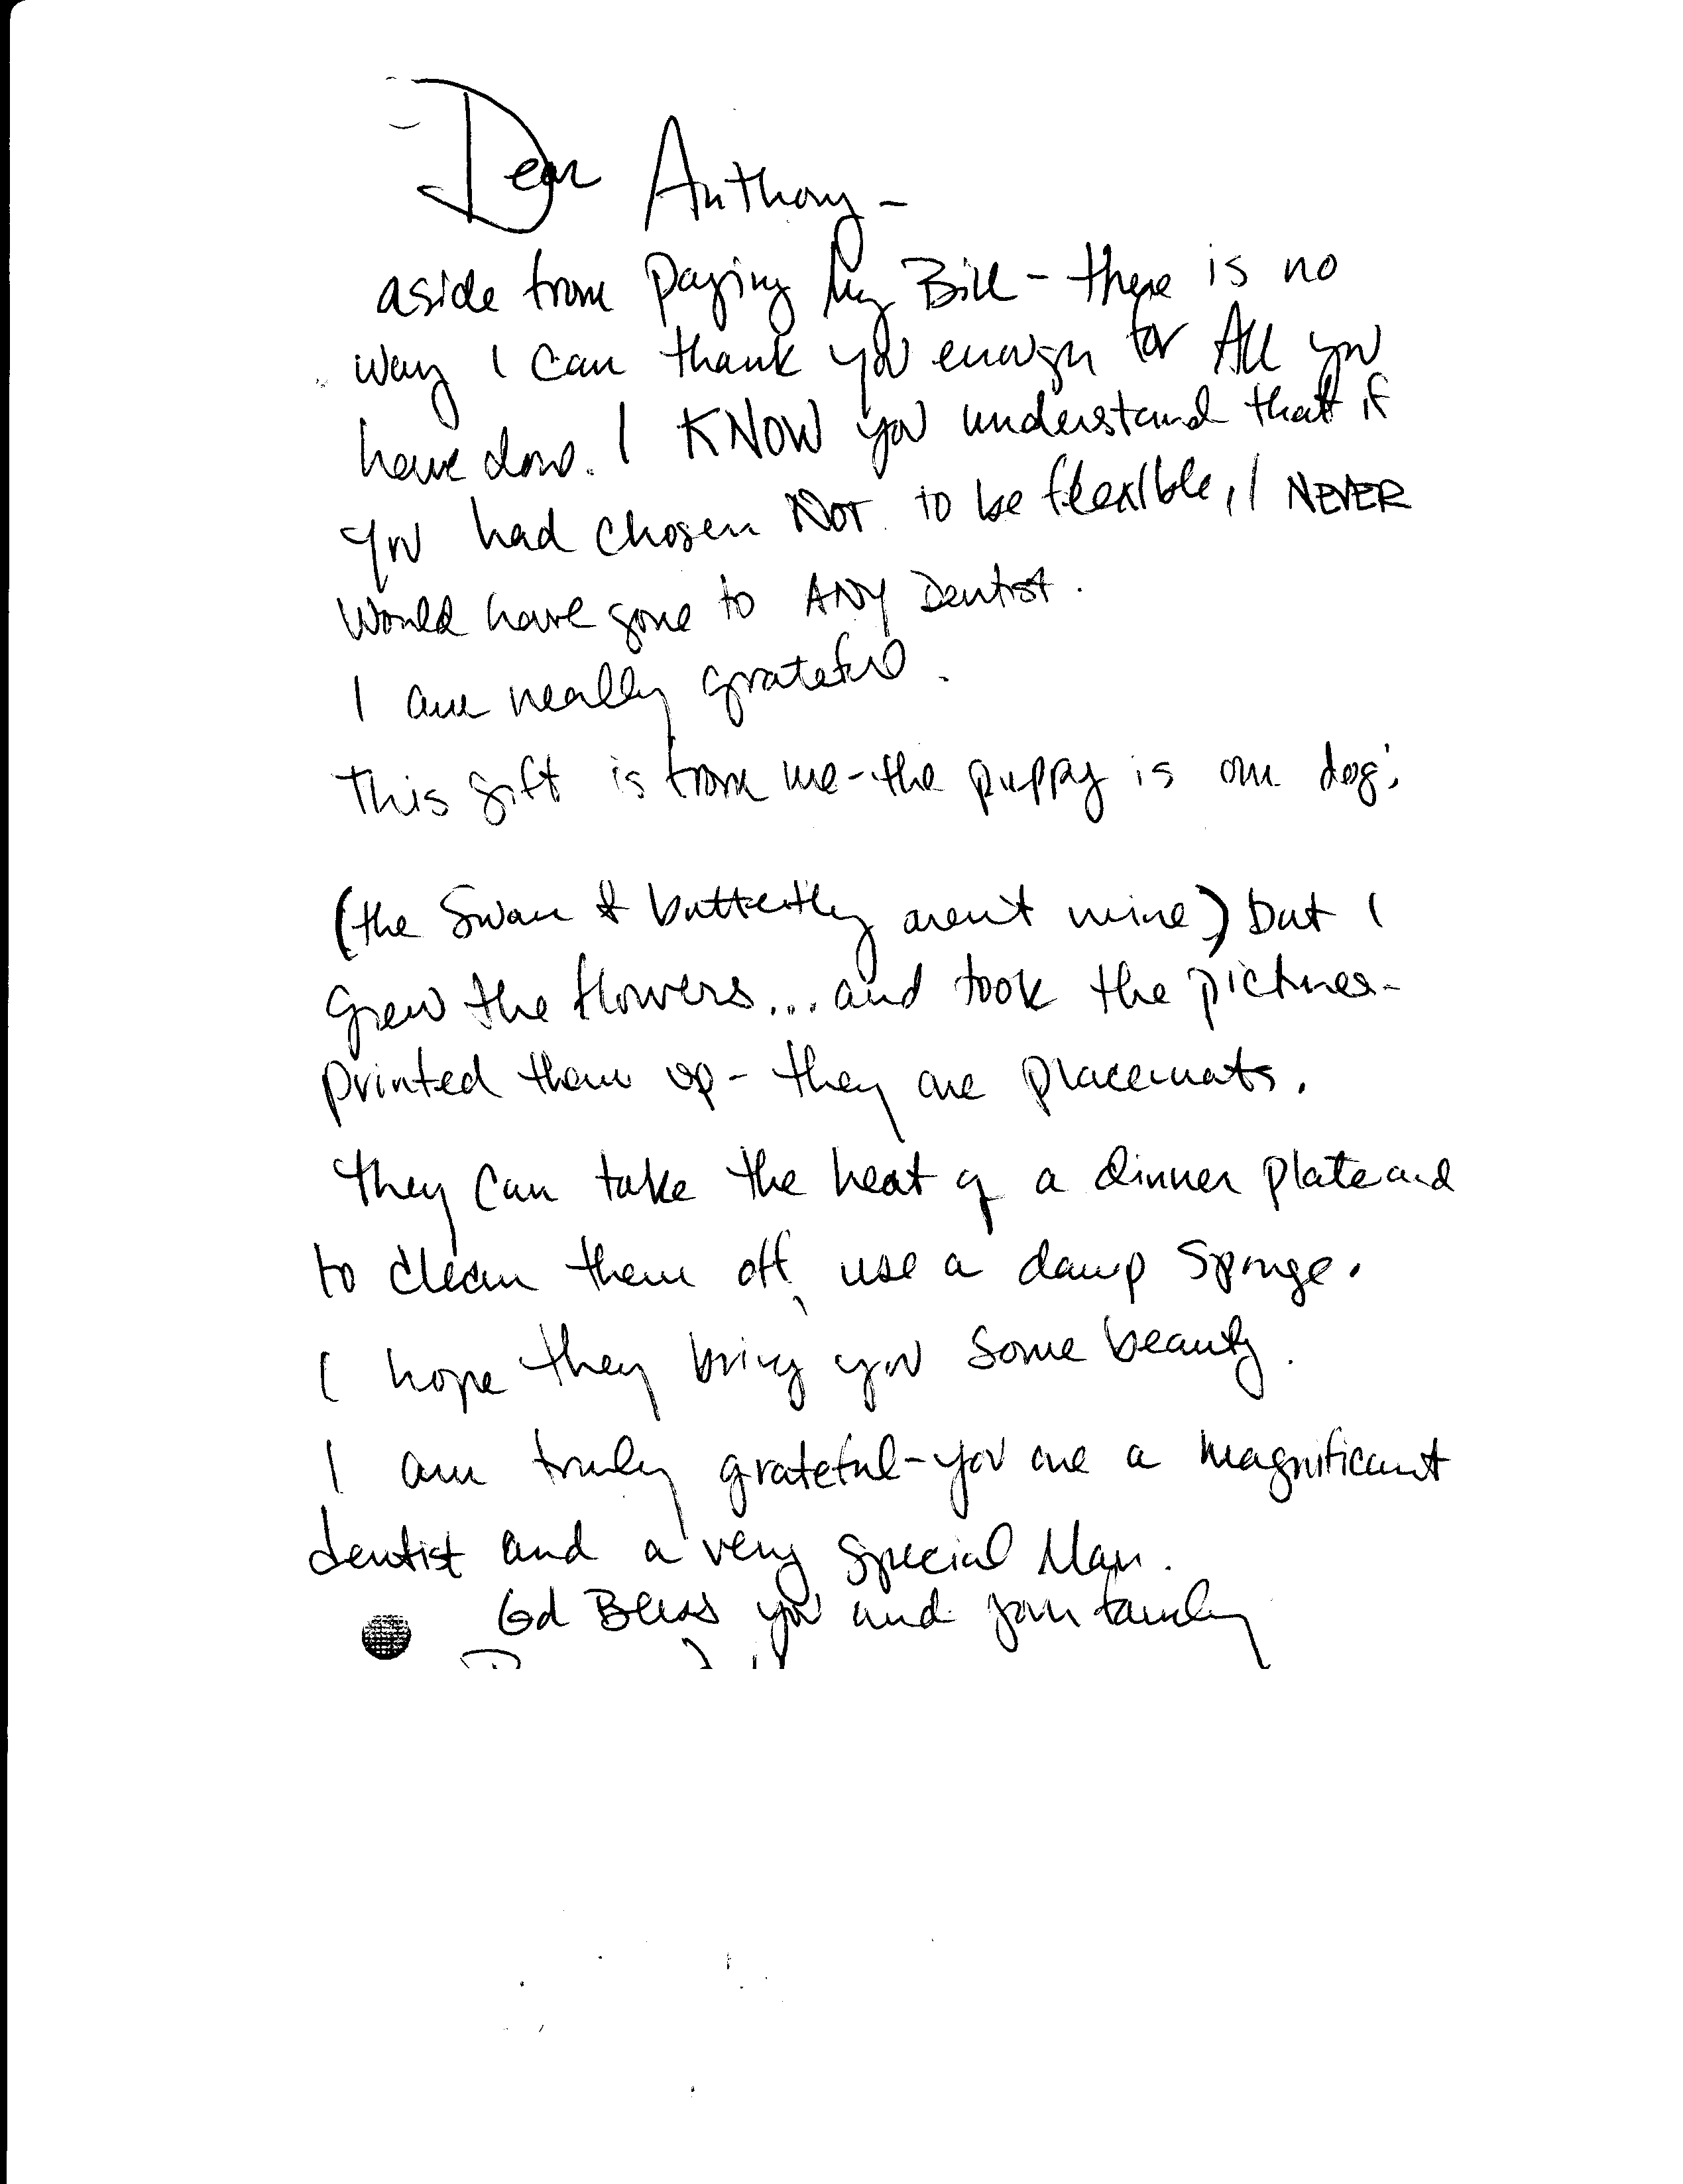 Dear Anthony-
aside from paying my Bill - there is no
way I can thank you enough for All you
have done. I KNOW you understand that if
you had chosen NOT to be flexible, I NEVER
would have gone to ANY Dentist.
I am really grateful.
This gift is from me - the puppy is our dog;
(the Swan & butterfly aren't mine) but I
grew the flowers... and took the pictures-
printed them up - they are placemats.
They can take the heat of a dinner plate and
to clean them off, use a damp sponge.
I hope they bring you some beauty.
I am truly grateful - you are a magnificant
dentist and a very special Man.
God Bless you and your family